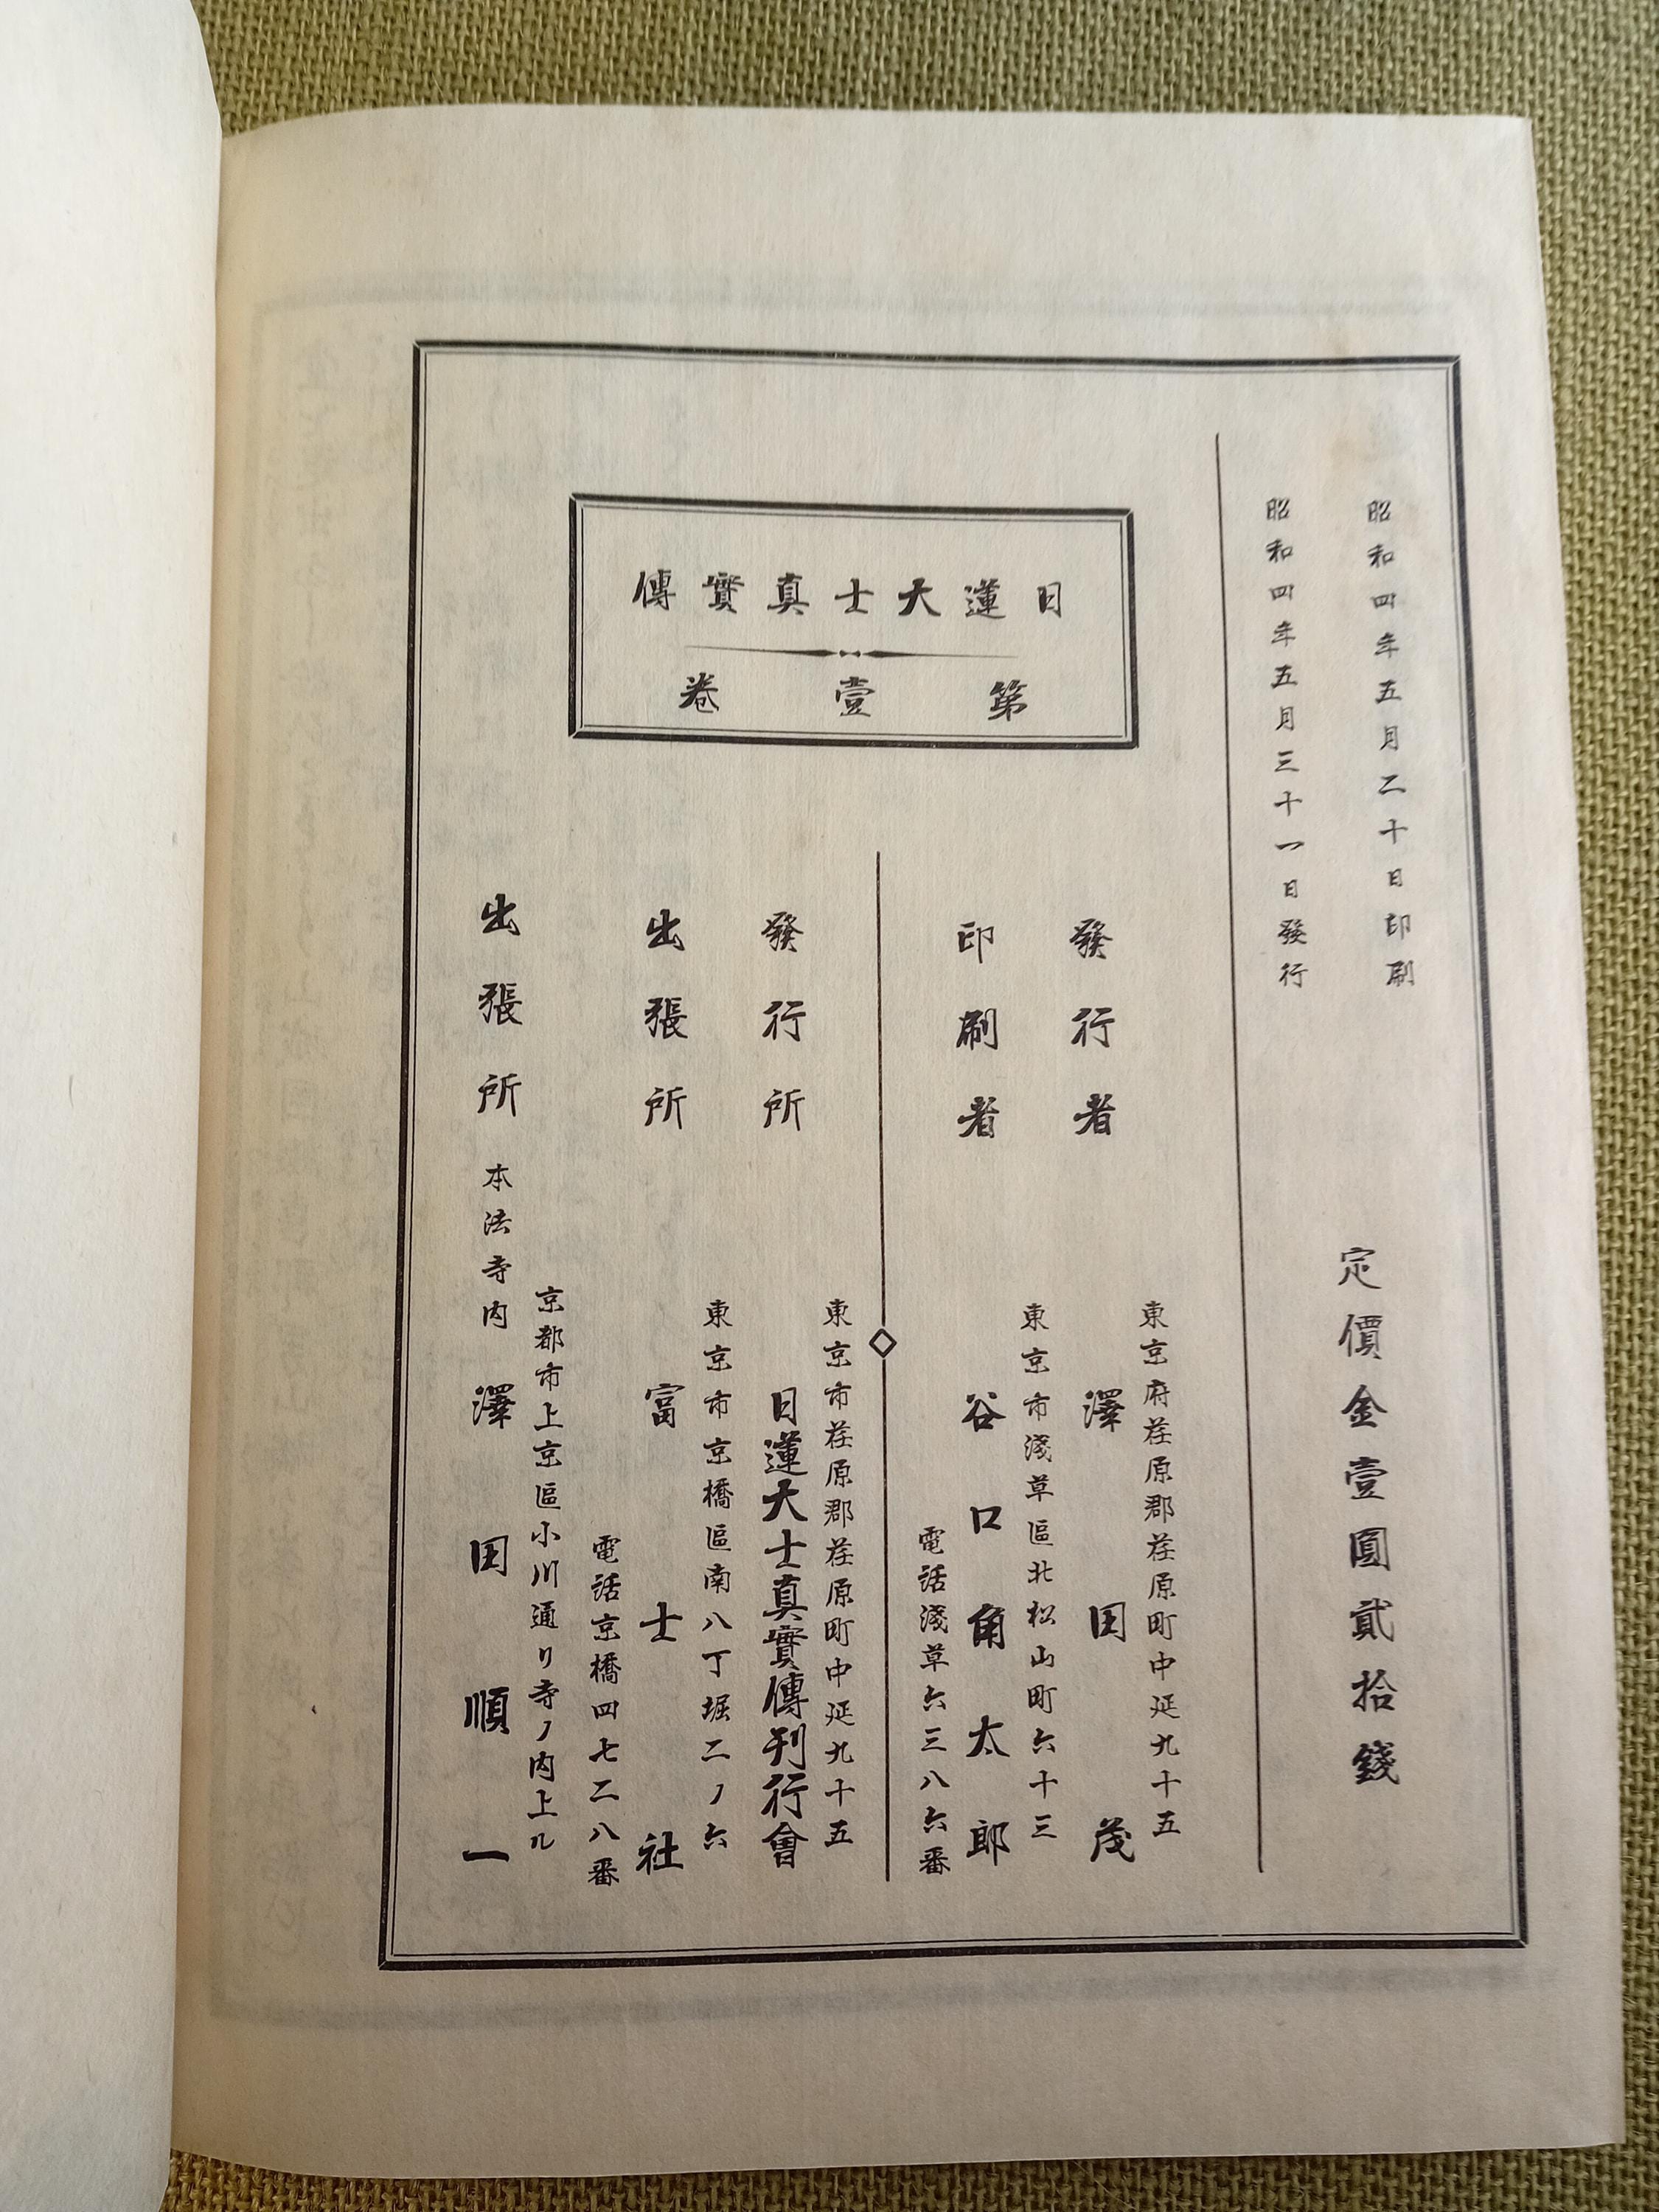 昭和四年五月二十日印刷
昭和四年五月三十一日發行
定價金壹圓貳拾錢
日蓮大士真實傳
第壹卷
發行者
東京府荏原郡荏原町中延九十五
澤田茂
印刷者
東京市淺草區北松山町六十三
谷口角太郎
電話淺草六三八六番
發行所
東京市荏原郡荏原町中延九十五
日蓮大士真實傳刊行會
出張所
東京市京橋區南八丁堀二ノ六
富士社
電話京橋四七二八番
出張所
京都市上京區小川通リ寺ノ内上ル
本法寺内 澤田順一